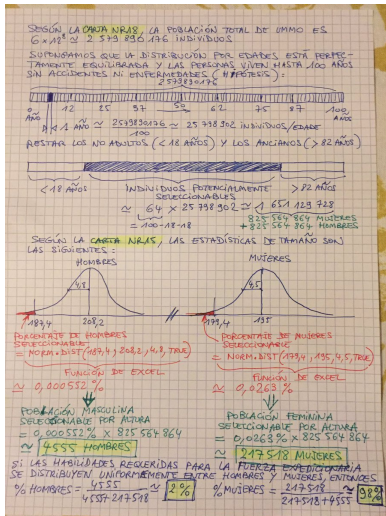 SEGÚN LA CARTA NR18, LA POBLACIÓN TOTAL DE UMMO ES
6×18⁸ ≃ 2 579 890 176 INDIVIDUOS
SUPONGAMOS QUE LA DISTRIBUCIÓN POR EDADES ESTÁ PERFEC-
TAMENTE EQUILIBRADA Y LAS PERSONAS VIVEN HASTA 100 AÑOS
SIN ACCIDENTES NI ENFERMEDADES (HIPÓTESIS):
2579890176
0 12 25 37 50 62 75 87 100
AÑO AÑOS
< 1 AÑO ≃ 2579890176 / 100 ≃ 25 798 902 INDIVIDUOS/EDADE
RESTAR LOS NO ADULTOS (< 18 AÑOS) Y LOS ANCIANOS (> 82 AÑOS)
< 18 AÑOS INDIVIDUOS POTENCIALMENTE > 82 AÑOS
SELECCIONABLES
≃ 64 × 25 798 902 ≃ 1 651 129 728
= 100-18-18 825 564 864 MUJERES
+ 825 564 864 HOMBRES
SEGÚN LA CARTA NR15, LAS ESTADÍSTICAS DE TAMAÑO SON
LAS SIGUIENTES:
HOMBRES MUJERES
4,8 4,5
187,4 208,2 // 179,4 195
PORCENTAJE DE HOMBRES
SELECCIONABLE
= NORM.DIST(187,4 ; 208,2 ; 4,8 ; TRUE)
FUNCIÓN DE EXCEL
≃ 0,000552 %
PORCENTAJE DE MUJERES
SELECCIONABLE
= NORM.DIST(179,4 ; 195 ; 4,5 ; TRUE)
FUNCIÓN DE EXCEL
≃ 0,0263 %
POBLACIÓN MASCULINA
SELECCIONABLE POR ALTURA
= 0,000552% × 825 564 864
≃ 4555 HOMBRES
POBLACIÓN FEMININA
SELECCIONABLE POR ALTURA
= 0,0263% × 825 564 864
≃ 217518 MUJERES
SI LAS HABILIDADES REQUERIDAS PARA LA FUERZA EXPEDICIONARIA
SE DISTRIBUYEN UNIFORMEMENTE ENTRE HOMBRES Y MUJERES, ENTONCES
% HOMBRES = 4555 / 4555+217518 ≃ 2% % MUJERES = 217518 / 217518+4555 ≃ 98%